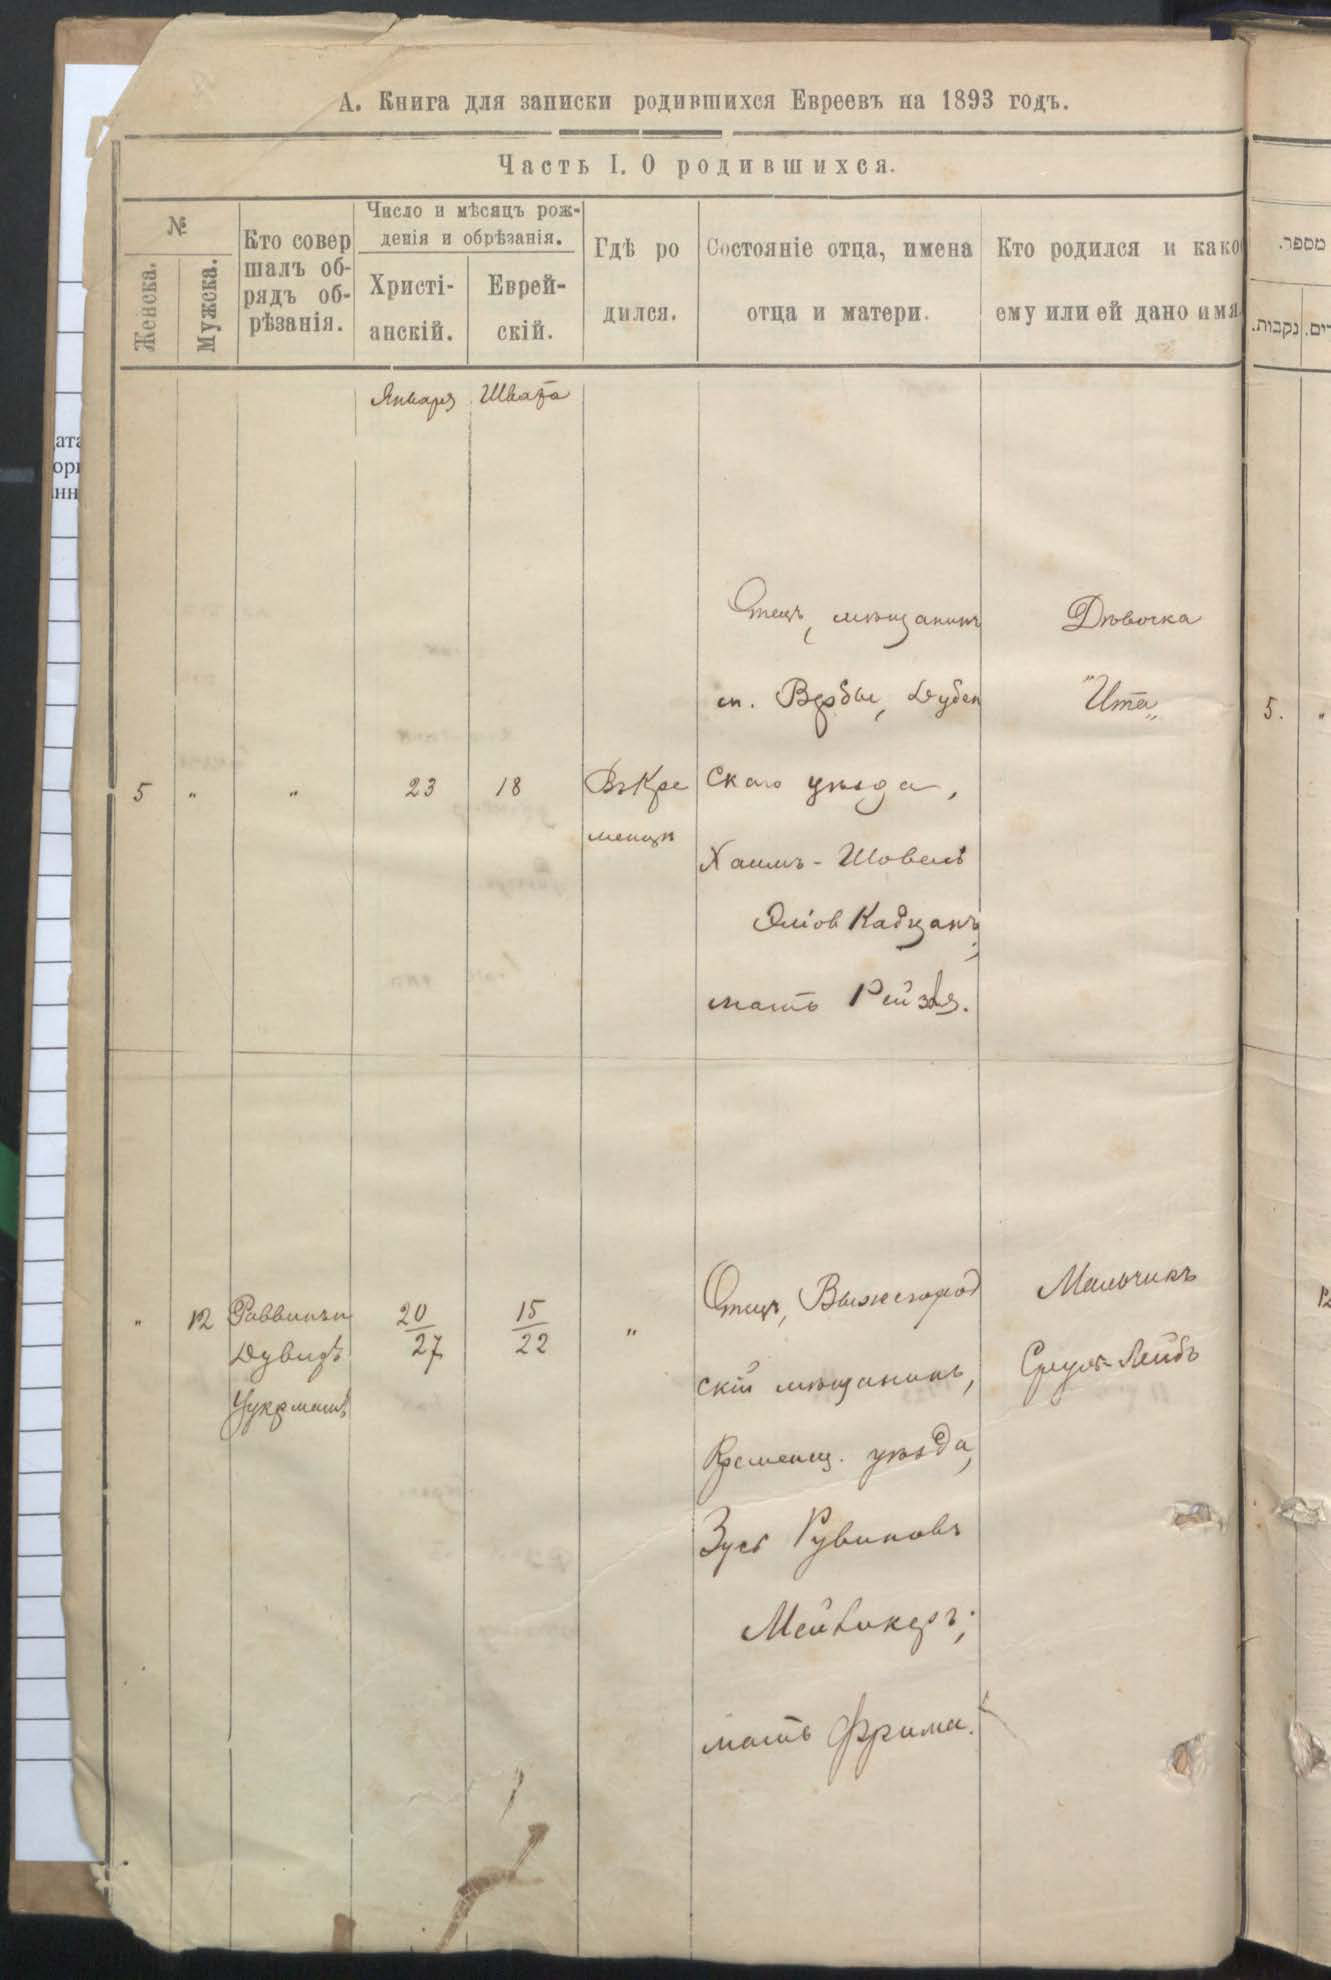 А. Книга для записки родившихся Евреевъ на 1893 годъ.
Часть I. О родившихся.
№
Женска.
Мужска.
Кто совер
шалъ об-
рядъ об-
рѣзанія.
Число и мѣсяцъ рож-
денія и обрѣзанія.
Христі-
анскій.
Еврей-
скій.
Гдѣ ро
дился.
Состояніе отца, имена
отца и матери.
Кто родился и како
ему или ей дано имя.
מספר.
נקבות.
רים.
Января
Швата
5
"
"
23
18
Въ Кре
менцѣ
Отецъ, мѣщанинъ
м. Вербы, Дубен
скаго уѣзда,
Хаимъ-Шовель
Эліов Кадзанъ;
мать Рейзя.
Дѣвочка
"Ита"
5.
"
"
12
Раввинъ
Дувидъ
Цукрманъ
20
27
15
22
"
Отецъ, Вышегород
скій мѣщанинъ,
Кременец. уѣзда,
Зусь Рувиновъ
Мейникеръ;
мать Фрима.
Мальчикъ
Сруль-Лейбъ
ата
орі
нн